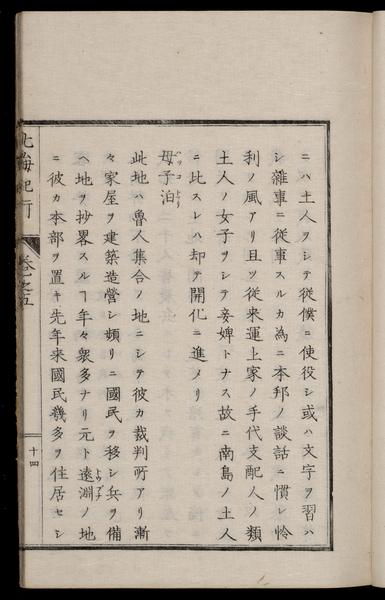 ニハ土人ヲシテ從僕ニ使役シ或ハ文字ヲ習ハ
シ雜事ニ從事スルカ為ニ本邦ノ談話ニ慣レ怜
利ノ風アリ且ツ從来運上家ノ手代支配人ノ類
土人ノ女子ヲシテ妾婢トナス故ニ南島ノ土人
ニ比スレハ却テ開化ニ進メリ
母子泊
此地ハ魯人集合ノ地ニシテ彼カ裁判所アリ漸
々家屋ヲ建築造營シ頻リニ國民ヲ移シ兵ヲ備
ヘ地ヲ抄畧スルヿ年々衆多ナリ元ト遠淵ノ地
ニ彼カ本部ヲ置キ先年来國民幾多ヲ住居セシ
北海紀行
卷之五
十四